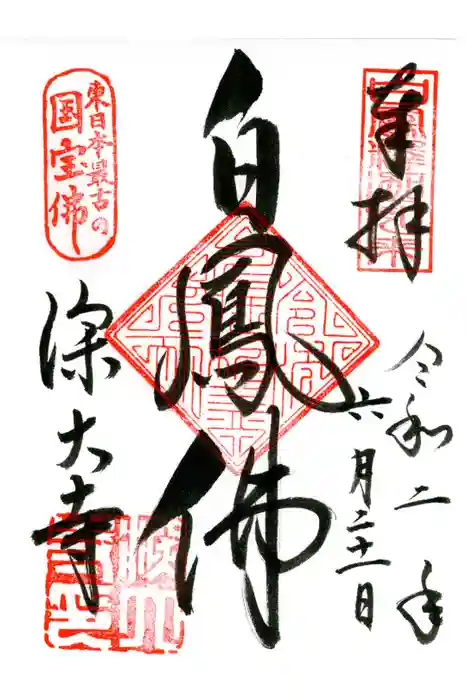 奉拝
令和二年
六月二十一日
白鳳佛
東日本最古の
国宝佛
深大寺